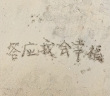 答应我会幸福